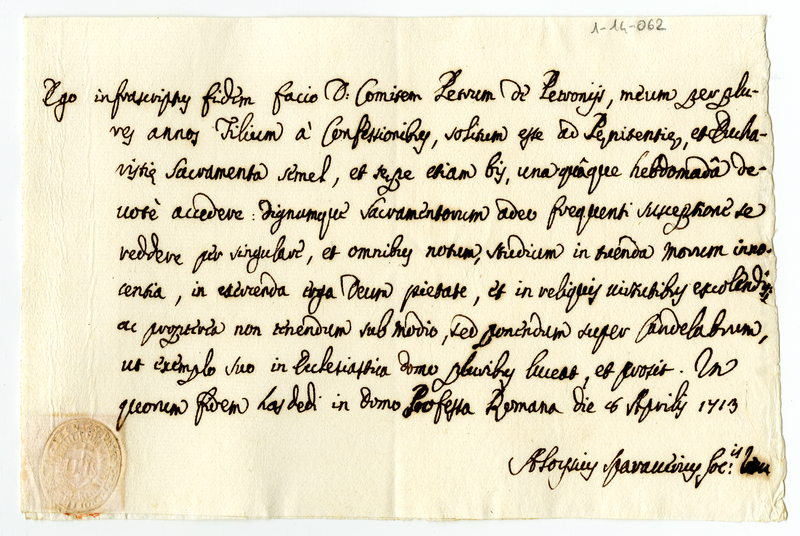 1-14-062
Ego infrascriptus fidem facio D: Comitem Petrum de Petronijs, meum per plu-
res annos Filium à Confessionibus, solitum esse ad Pęnitentię, et Eucha-
ristię Sacramenta semel, et sępe etiam bis, una quâque hebdomadâ de-
votè accedere: Dignumque Sacramentorum adeo frequenti susceptione se
reddere per singulare, et omnibus notum, studium in tuenda morum inno-
centia, in exercenda erga Deum pietate, et in reliquis virtutibus excolendis,
ac propterea non tenendum sub modio, sed ponendum super Candelabrum,
ut exemplo suo in Ecclesiastica domo pluribus luceat, et prosit. In
quorum fidem has dedi in Domo Professa Romana die 8 Aprilis 1713
Aloysius Soc.is Iesu